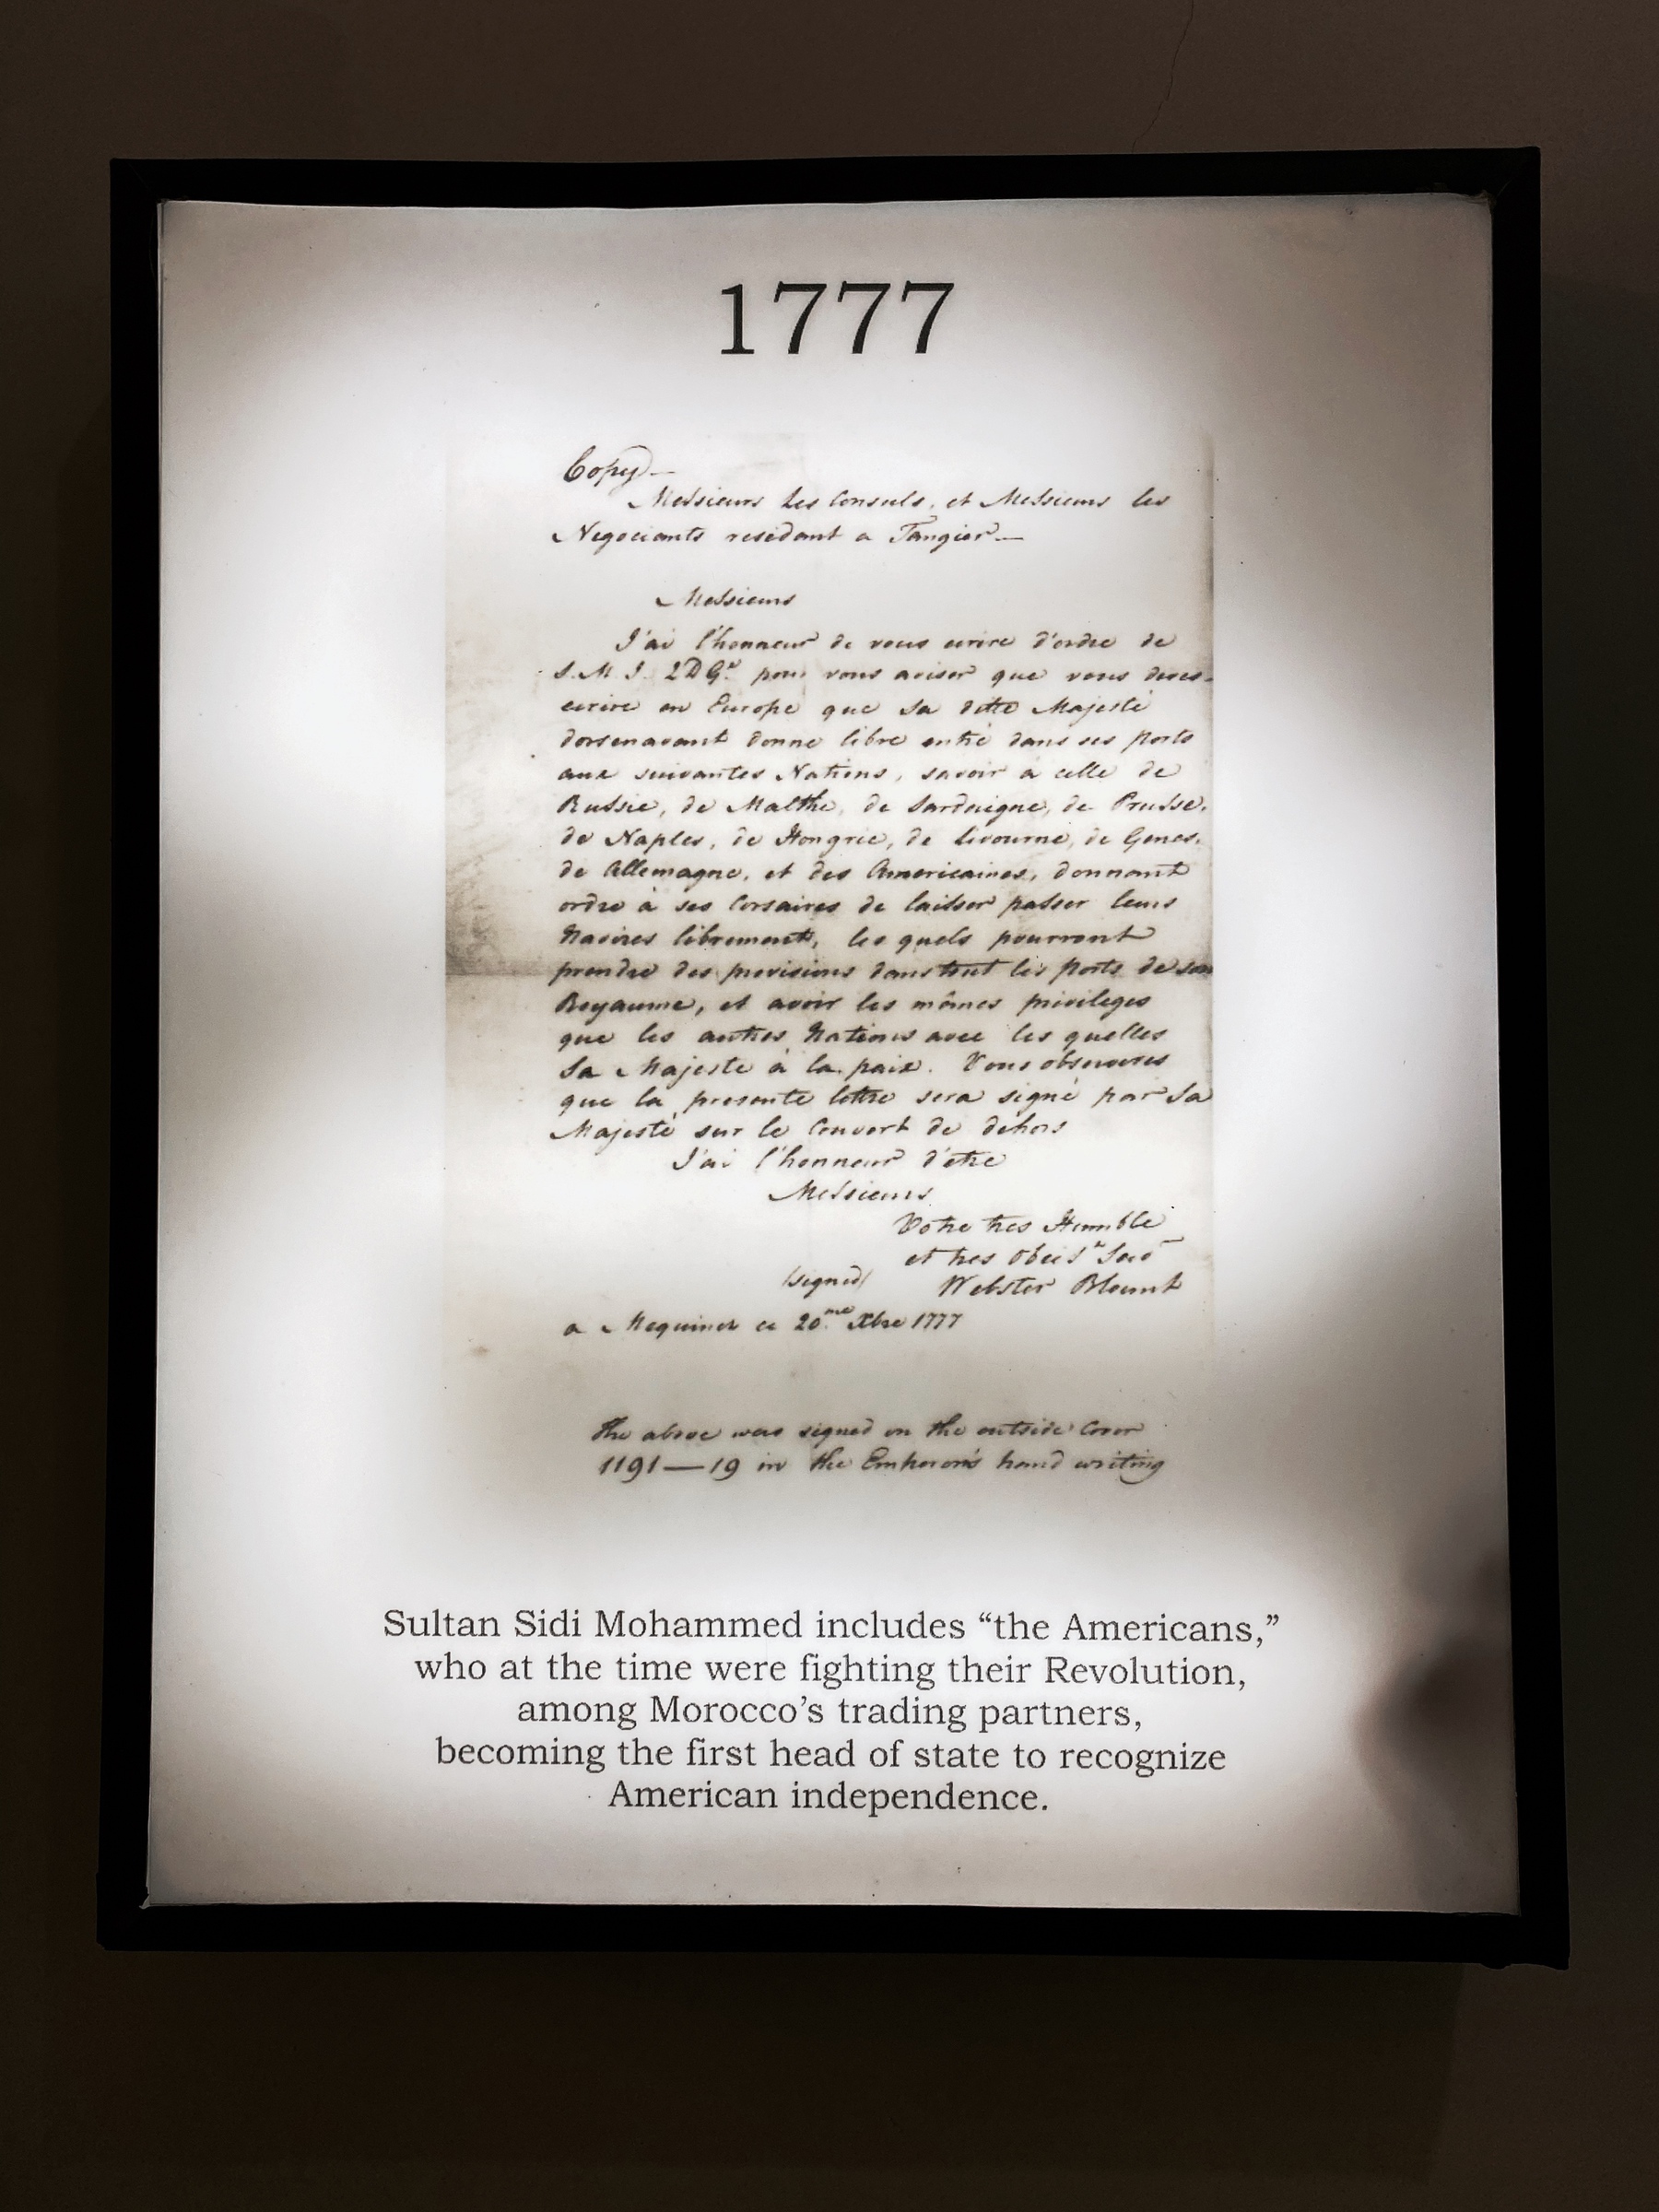 1777
Copy—
Messieurs Les Consuls, et Messieurs les
Negociants residant a Tangier—
Messieurs
J'ai l'honneur de vous ecrire d'ordre de
S. M. I. pour vous aviser que vous deves
ecrire en Europe que Sa ditte Majesté
dorsenavant donne libre entré dans ses ports
aux suivantes Nations, savoir à celle de
Russie, de Malthe, de Sardaigne, de Prusse,
de Naples, de Hongrie, de Livourne, de Genes,
de Allemagne, et des Americaines, donnant
ordre à ses Corsaires de laisser passer leurs
Navires librement, les quels pourront
prendre des provisions dans tout les ports de son
Royaume, et avoir les mêmes privileges
que les autres Nations avec les quelles
Sa Majeste à la paix. Vous observeres
que la presente lettre sera signé par Sa
Majesté sur le Couvert de dehors
J'ai l'honneur d'etre
Messieurs
Votre tres Humble
et tres
(signed) Webster Blount
a Mequinez ce 20.me Xbre 1777
the above was signed on the outside Cover
1191—19 in the Emperor's hand writing
Sultan Sidi Mohammed includes “the Americans,”
who at the time were fighting their Revolution,
among Morocco’s trading partners,
becoming the first head of state to recognize
American independence.